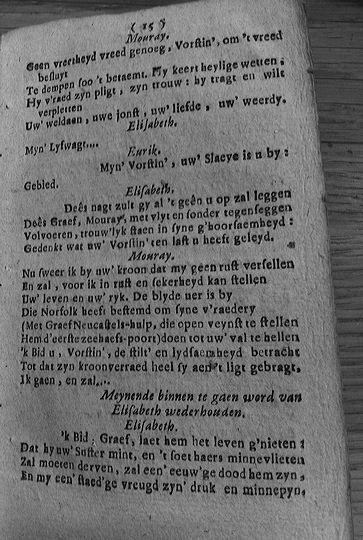 ( 15 )
Mouray.
Geen vreetheyd vreed genoeg, Vorstin', om 't vreed
besluyt
Te dempen soo 't betaemt. Hy keert heylige wetten;
Hy v'raed zyn pligt, zyn trouw: hy tragt en wilt
verpletten
Uw' weldaen, uwe jonst, uw' liefde, uw' weerdy.
Elisabeth.
Myn' Lyfwagt....
Eurik.
Myn' Vorstin', uw' Slaeve is u by:
Gebied.
Elisabeth.
Deês nagt zult gy al 't geên u op zal leggen
Deês Graef, Mouray, met vlyt en sonder tegenseggen
Volvoeren, trouw'lyk staen in syne g'hoorsaemheyd:
Gedenkt wat uw' Vorstin' ten last u heeft geleyd.
Mouray.
Nu sweer ik by uw' kroon dat my geen rust versellen
En zal, voor ik in rust en sekerheyd kan stellen
Uw' leven en uw' ryk. De blyde uer is by
Die Norfolk heeft bestemd om syne v'raedery
(Met Graef Neucastels-hulp, die open veynst te stellen
Hem d'eerste zeehaefs-poort) doen tot uw' val te hellen
'k Bid u, Vorstin', de stilt' en lydsaemheyd betracht
Tot dat zyn kroonverraed heel sy aen 't ligt gebragt.
Ik gaen, en zal....
Meynende binnen te gaen word van
Elisabeth wederhouden.
Elisabeth.
'k Bid; Graef, laet hem het leven g'nieten:
Dat hy uw' Suster mint, en 't soet haers minnevlieten
Zal moeten derven, zal een' eeuw'ge dood hem zyn,
En my een' staed'ge vreugd zyn' druk en minnepyn.